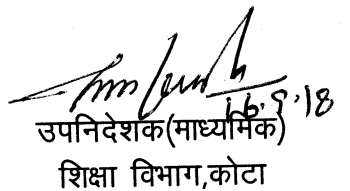 16.9.18
उपनिदेशक(माध्यमिक)
शिक्षा विभाग,कोटा